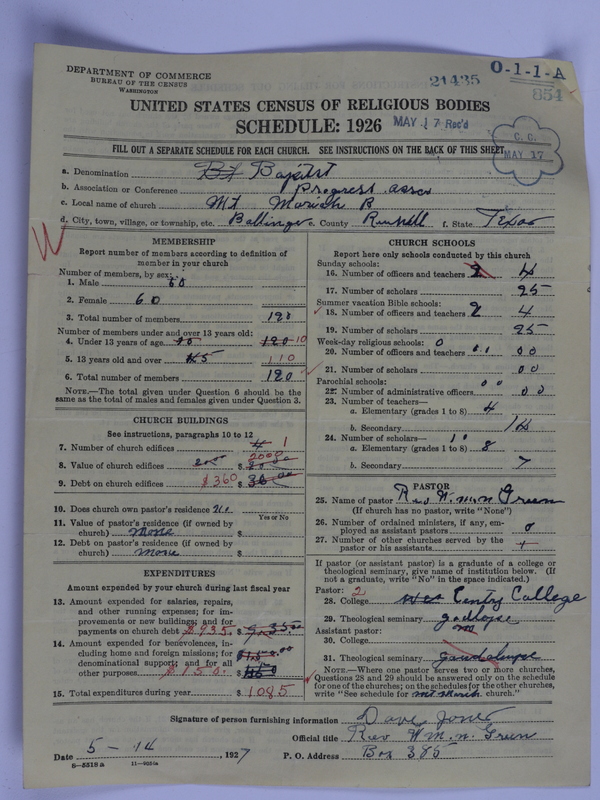 DEPARTMENT OF COMMERCE
BUREAU OF THE CENSUS
WASHINGTON
21435
O-1-1-A
854
UNITED STATES CENSUS OF RELIGIOUS BODIES
SCHEDULE: 1926
MAY 17 Rec'd
C. C.
MAY 17
FILL OUT A SEPARATE SCHEDULE FOR EACH CHURCH. SEE INSTRUCTIONS ON THE BACK OF THIS SHEET
a. Denomination Baptist
b. Association or Conference Progress asso
c. Local name of church Mt Moriah B
d. City, town, village, or township, etc. Ballinger e. County Runnell f. State Texas
MEMBERSHIP
Report number of members according to definition of
member in your church
Number of members, by sex:
1. Male 60
2. Female 60
3. Total number of members 120
Number of members under and over 13 years old:
4. Under 13 years of age 120 10
5. 13 years old and over 110
6. Total number of members 120
NOTE.—The total given under Question 6 should be the
same as the total of males and females given under Question 3.
CHURCH BUILDINGS
See instructions, paragraphs 10 to 12
7. Number of church edifices 4 1
8. Value of church edifices $ 2000
9. Debt on church edifices $360 $
10. Does church own pastor's residence
Yes or No
11. Value of pastor's residence (if owned by
church) None $
12. Debt on pastor's residence (if owned by
church) None $
EXPENDITURES
Amount expended by your church during last fiscal year
13. Amount expended for salaries, repairs,
and other running expenses; for im-
provements or new buildings; and for
payments on church debt $935. $
14. Amount expended for benevolences, in-
cluding home and foreign missions; for
denominational support; and for all
other purposes $150. $
15. Total expenditures during year $ 1085
CHURCH SCHOOLS
Report here only schools conducted by this church
Sunday schools:
16. Number of officers and teachers 2 4
17. Number of scholars 25
Summer vacation Bible schools:
18. Number of officers and teachers 2 4
19. Number of scholars 25
Week-day religious schools: 0
20. Number of officers and teachers 00
21. Number of scholars 00
Parochial schools: 00
22. Number of administrative officers 00
23. Number of teachers—
a. Elementary (grades 1 to 8) 4
b. Secondary
24. Number of scholars—
a. Elementary (grades 1 to 8) 8
b. Secondary 7
PASTOR
25. Name of pastor Rev Wm N Green
(If church has no pastor, write "None")
26. Number of ordained ministers, if any, em-
ployed as assistant pastors 0
27. Number of other churches served by the
pastor or his assistants
If pastor (or assistant pastor) is a graduate of a college or
theological seminary, give name of institution below. (If
not a graduate, write "No" in the space indicated.)
Pastor: 2
28. College College
29. Theological seminary
Assistant pastor:
30. College
31. Theological seminary Guadalupe
NOTE.—Where one pastor serves two or more churches,
Questions 28 and 29 should be answered only on the schedule
for one of the churches; on the schedules for the other churches,
write "See schedule for Mt Moriah church."
Signature of person furnishing information Dave Jones
Official title Rev Wm. N. Green
Date 5-14, 1927 P. O. Address Box 385
8-5518 a